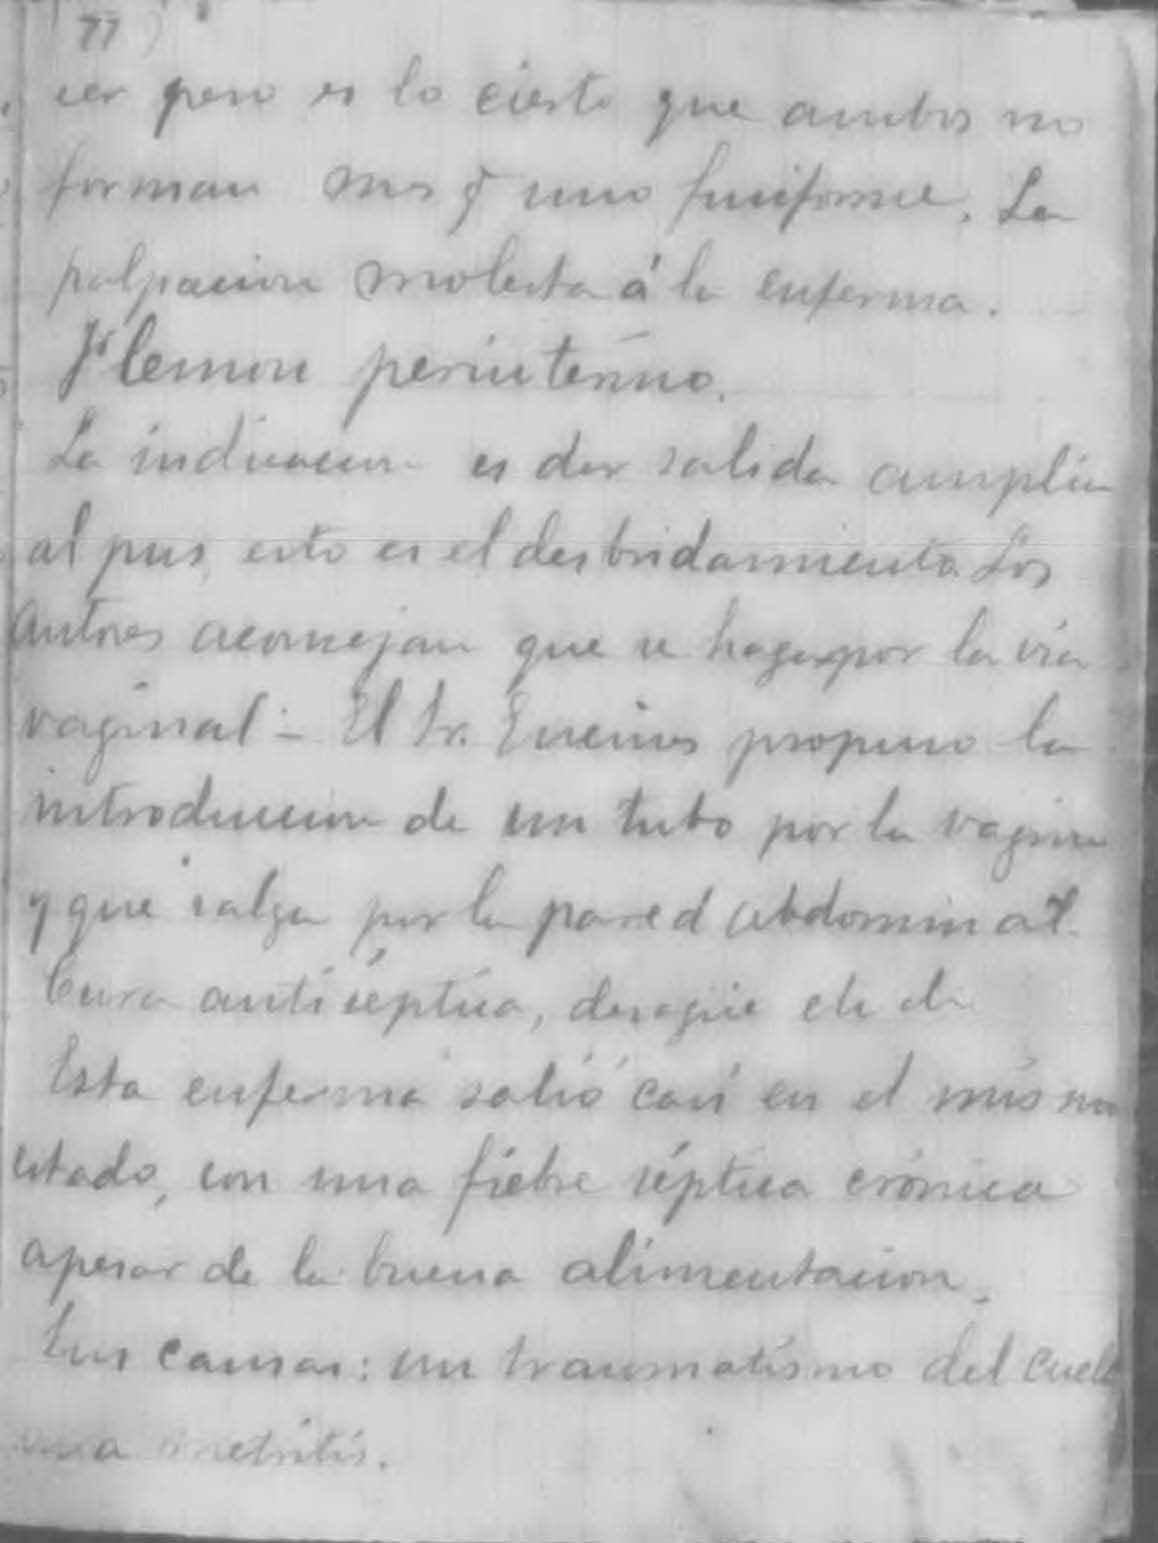 77
cer pero es lo cierto que ambos no
forman mas q̃ uno fusiforme. La
palpacion molesta á la enferma.
Flemon periuterino.
La indicacion es dar salida amplia
al pus, esto es el desbridamiento. Los
autores aconsejan que se haga por la via
vaginal - El Sr. Encinas propuso la
introduccion de un tubo por la vagina
y que salga por la pared abdominal.
Cura antiséptica, desagüe etc etc
Esta enferma salió casi en el mismo
estado, con una fiebre séptica crónica
apesar de la buena alimentacion.
Sus causas: un traumatismo del cuello
una metritis.